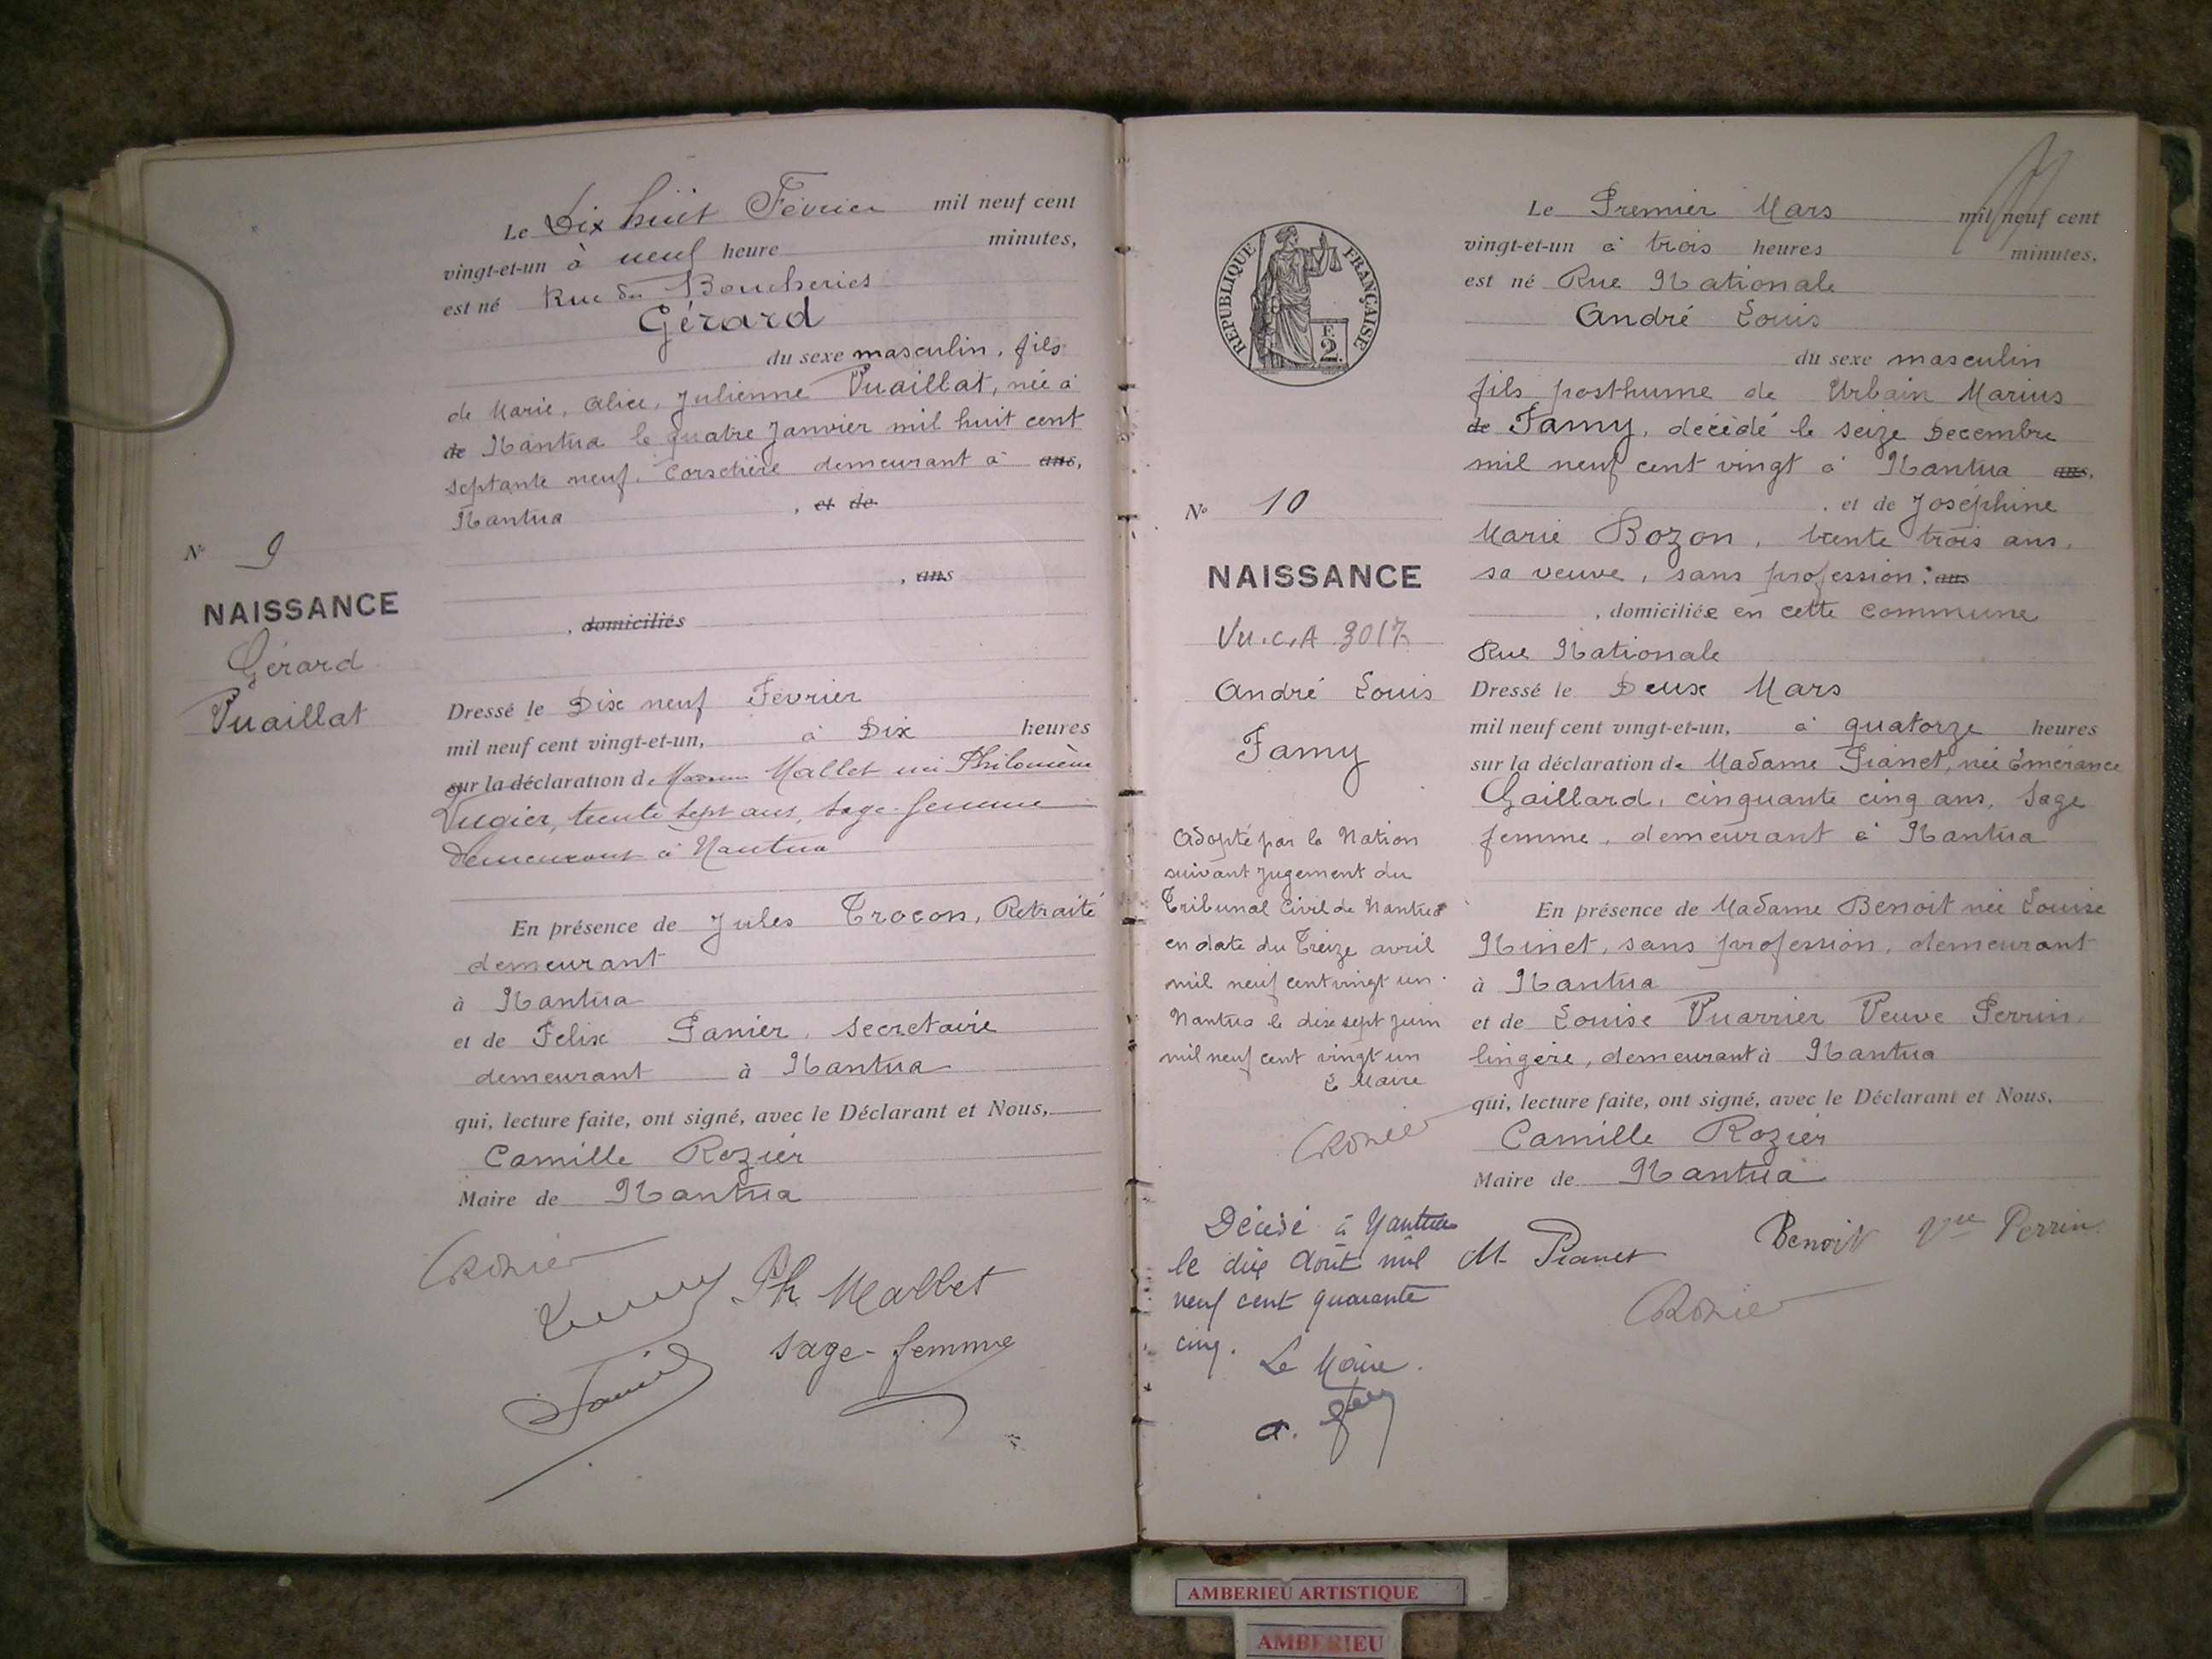 Le Dix huit Février mil neuf cent
vingt-et-un à neuf heure minutes,
est né Rue des Boucheries
Gérard
du sexe masculin, fils
de Marie, Alice, Julienne Vuaillat, née à
de Nantua le quatre Janvier mil huit cent
septante neuf. Corsetière demeurant à ans,
Nantua , et de
, ans
, domiciliés
N° 9
NAISSANCE
Gérard
Vuaillat
Dressé le Dix neuf Février
mil neuf cent vingt-et-un, à Dix heures
sur la déclaration de Madame Mallet née Philomène
Vugier, trente sept ans, sage-femme
demeurant à Nantua
En présence de Jules Trocon, Retraité
demeurant
à Nantua
et de Felix Panier, secretaire
demeurant à Nantua
qui, lecture faite, ont signé, avec le Déclarant et Nous,
Camille Rozier
Maire de Nantua
CRozier
Ph Mallet
sage-femme
Panier
Le Premier Mars mil neuf cent
vingt-et-un à trois heures minutes,
est né Rue Nationale
André Louis
du sexe masculin
fils posthume de Urbain Marius
de Famy, décédé le seize Decembre
mil neuf cent vingt à Nantua ans,
, et de Joséphine
Marie Bozon, trente trois ans,
sa veuve, sans profession, ans
, domiciliée en cette commune
Rue Nationale
REPUBLIQUE FRANÇAISE
E
2
N° 10
NAISSANCE
Vu.C.A 3017
André Louis
Famy
Dressé le Deux Mars
mil neuf cent vingt-et-un, à quatorze heures
sur la déclaration de Madame Pianet, née Emérance
Gaillard, cinquante cinq ans, sage
femme, demeurant à Nantua
En présence de Madame Benoit née Louise
Ninet, sans profession, demeurant
à Nantua
et de Louise Vuarrier Veuve Perrin,
lingère, demeurant à Nantua
qui, lecture faite, ont signé, avec le Déclarant et Nous,
Camille Rozier
Maire de Nantua
M. Pianet Benoit Vve Perrin
CRozier
Adopté par la Nation
suivant jugement du
Tribunal Civil de Nantua
en date du Treize avril
mil neuf cent vingt un.
Nantua le dix sept juin
mil neuf cent vingt un
Le Maire
CRozier
Décédé à Nantua
le dix Août mil
neuf cent quarante
cinq.
Le Maire.
AMBERIEU ARTISTIQUE
AMBERIEU